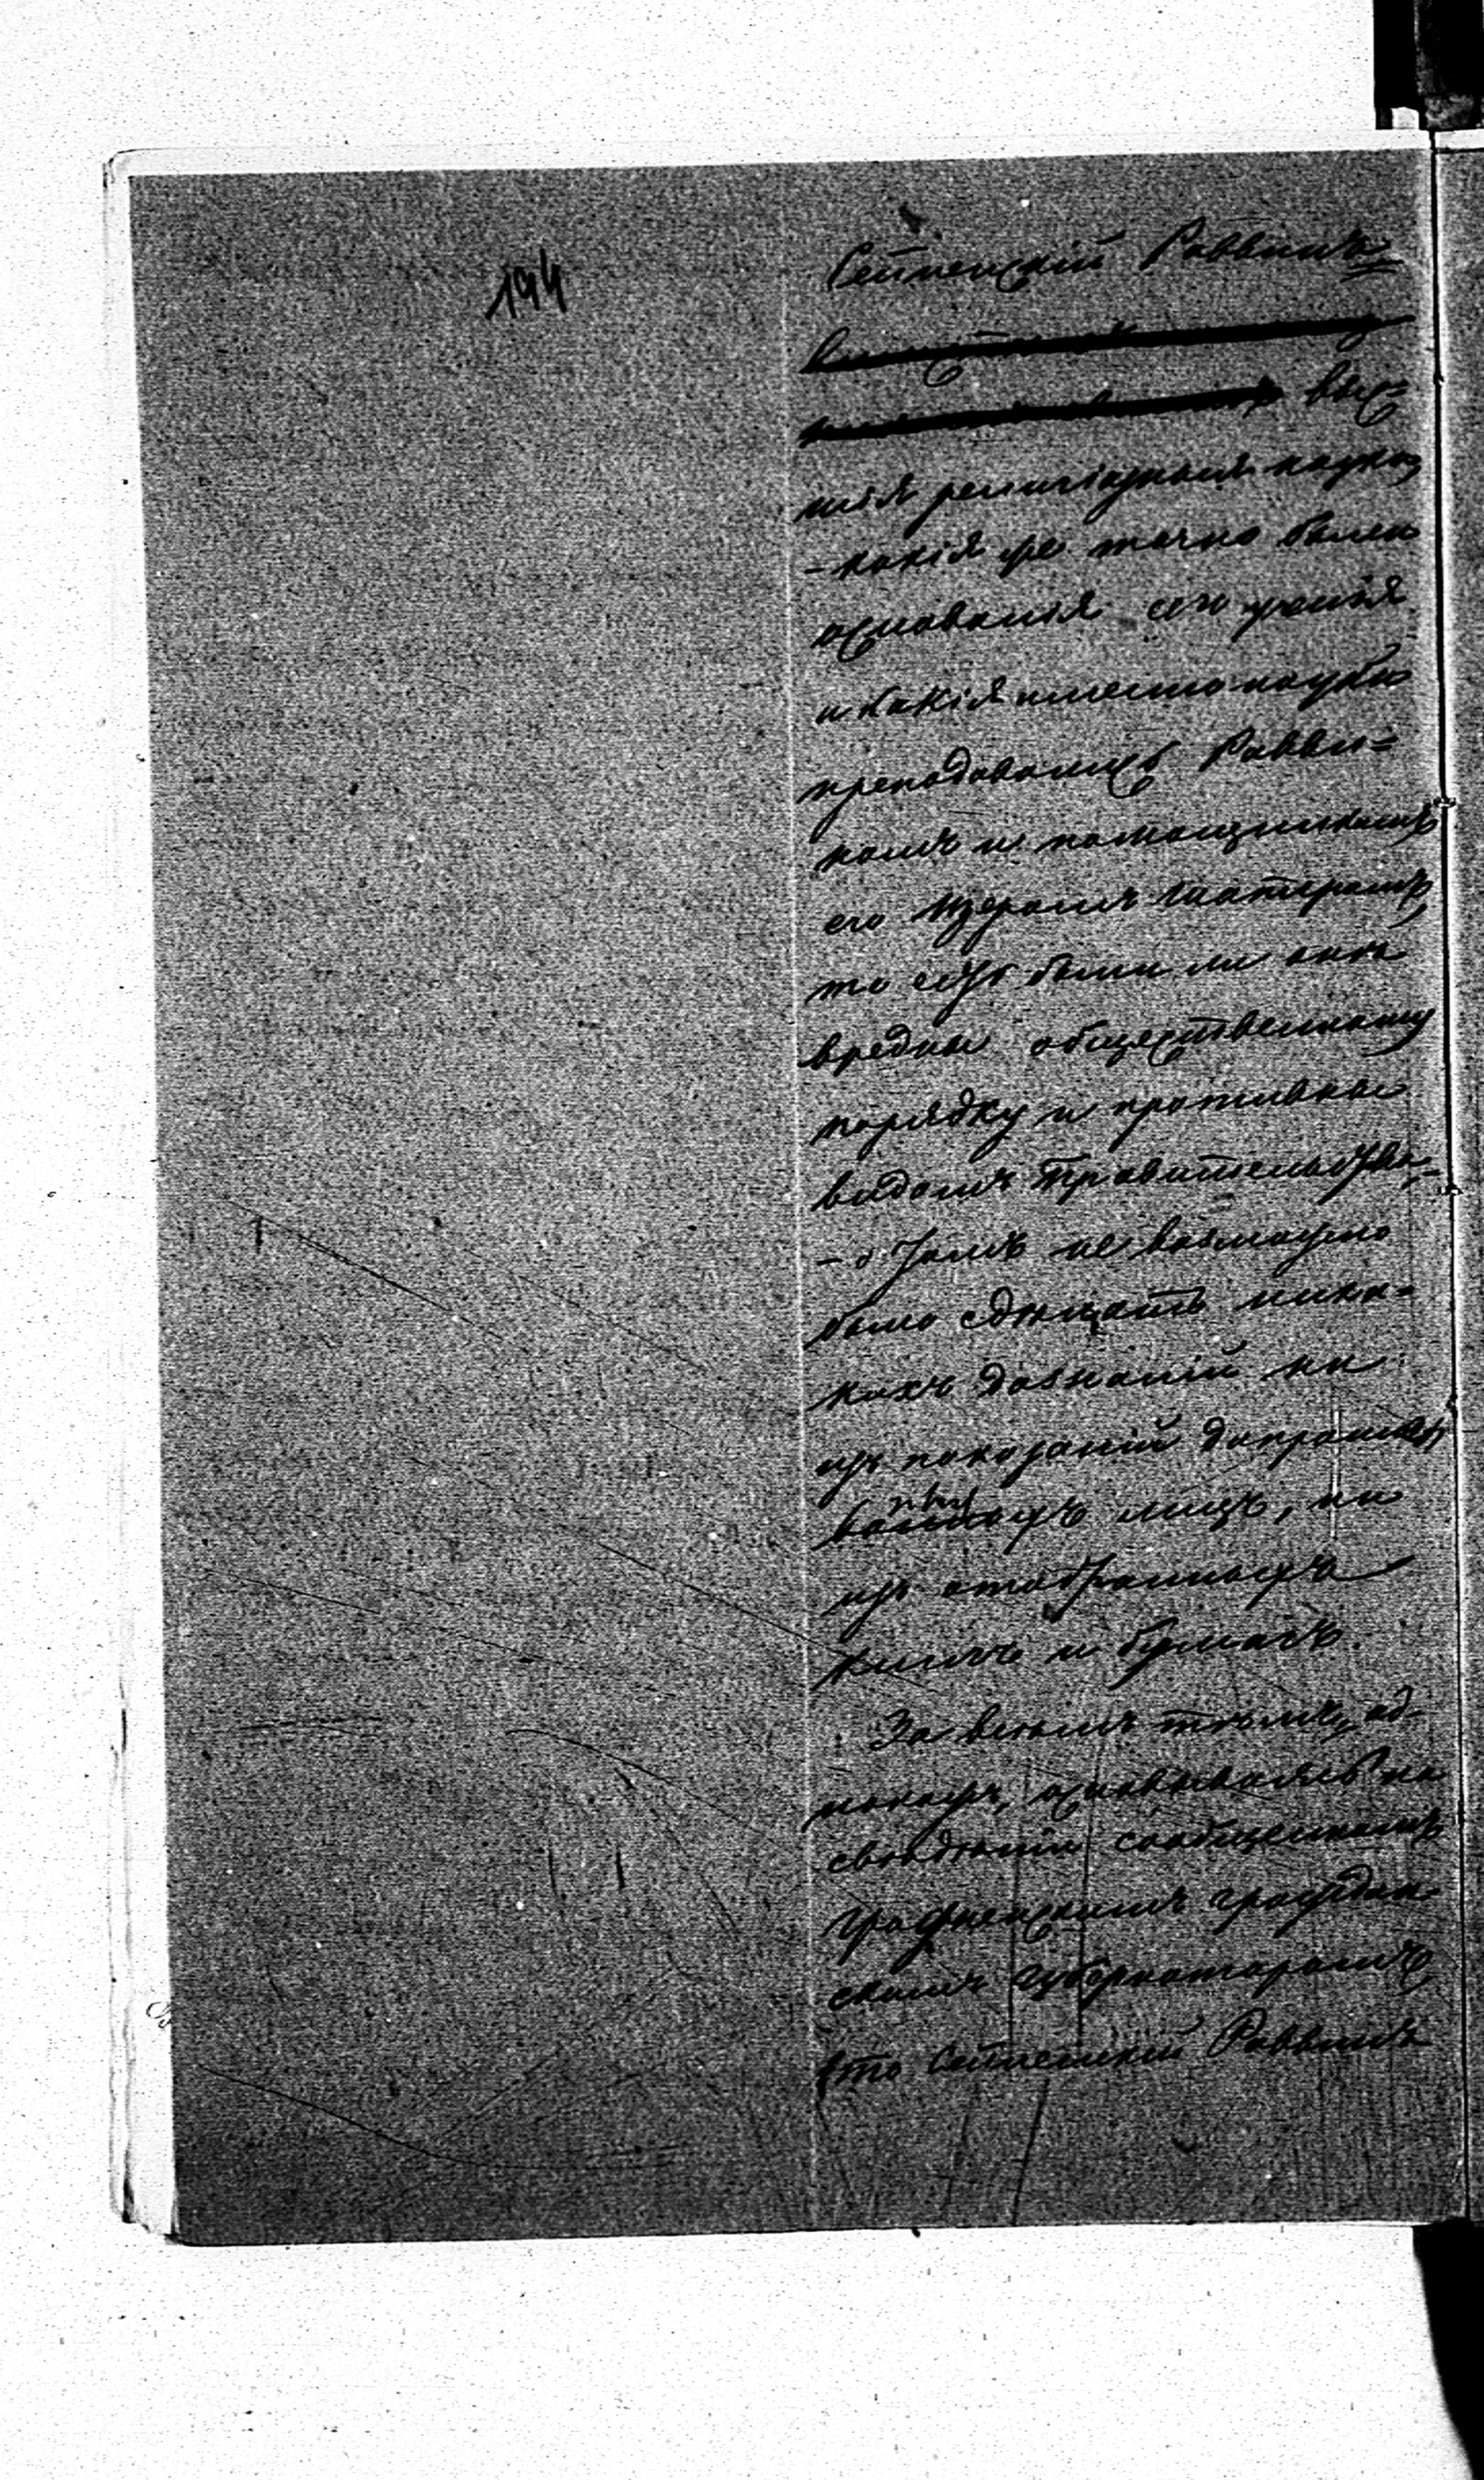 194
Сейненскій Раввинъ
выс=
шія религіозныя науки,
- какія же точно были
основанія сего ученія
и какія имѣнно науки
преподовались Равви=
номъ и помощникомъ
его
то есть были ли онѣ
вредны общественному
порядку и противны
видамъ Правительства,
- о томъ не возможно
было сдѣлать ника=
кихъ дознаній ни
изъ показаній допраши-
ванныхъ лицъ, ни
изъ отобранныхъ
книгъ и бумагъ.
За всѣмъ тѣмъ, од
накожъ, основываясь на
свѣдѣніи сообщенномъ
Гродненскимъ Граждан
скимъ Губернаторомъ
что Сейненскій Раввинъ